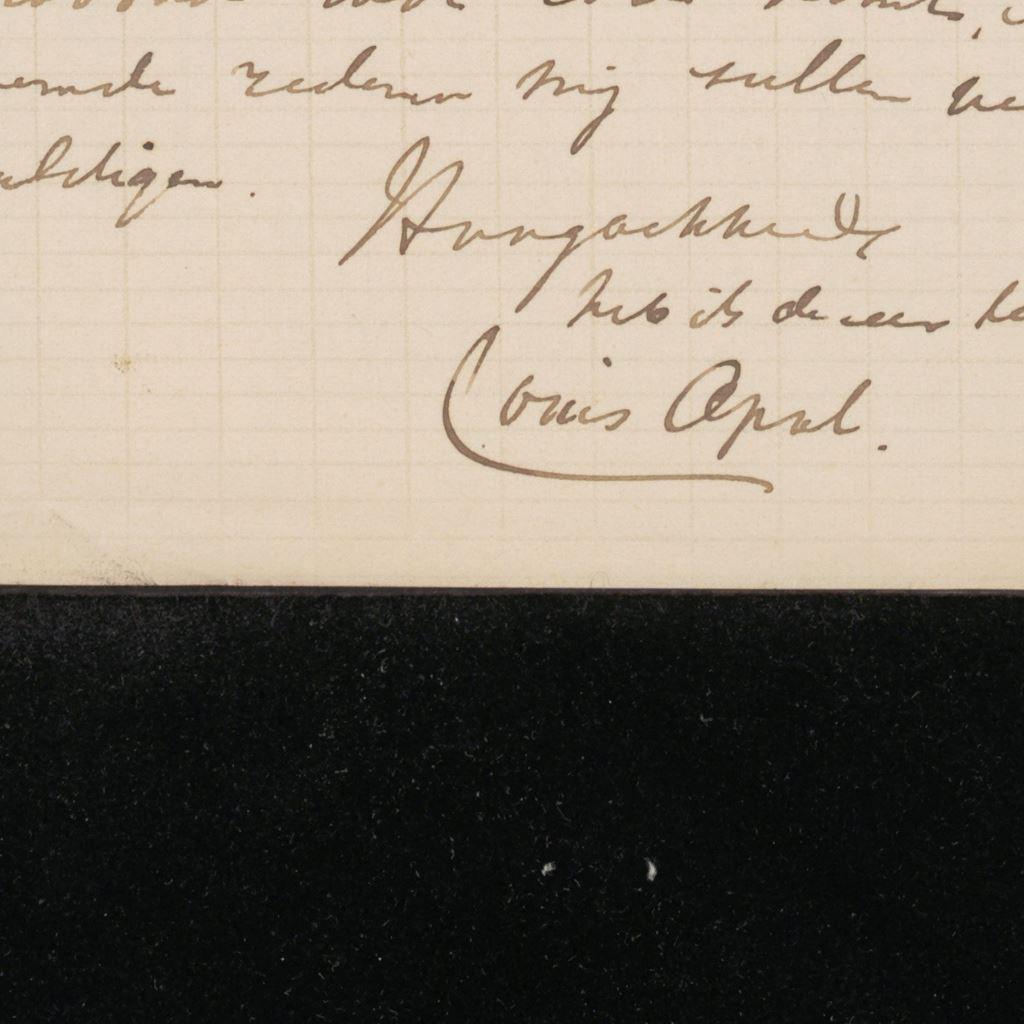 redenen mij zullen
uldigen.
Hoogachtend
heb ik de eer
Louis Apol.